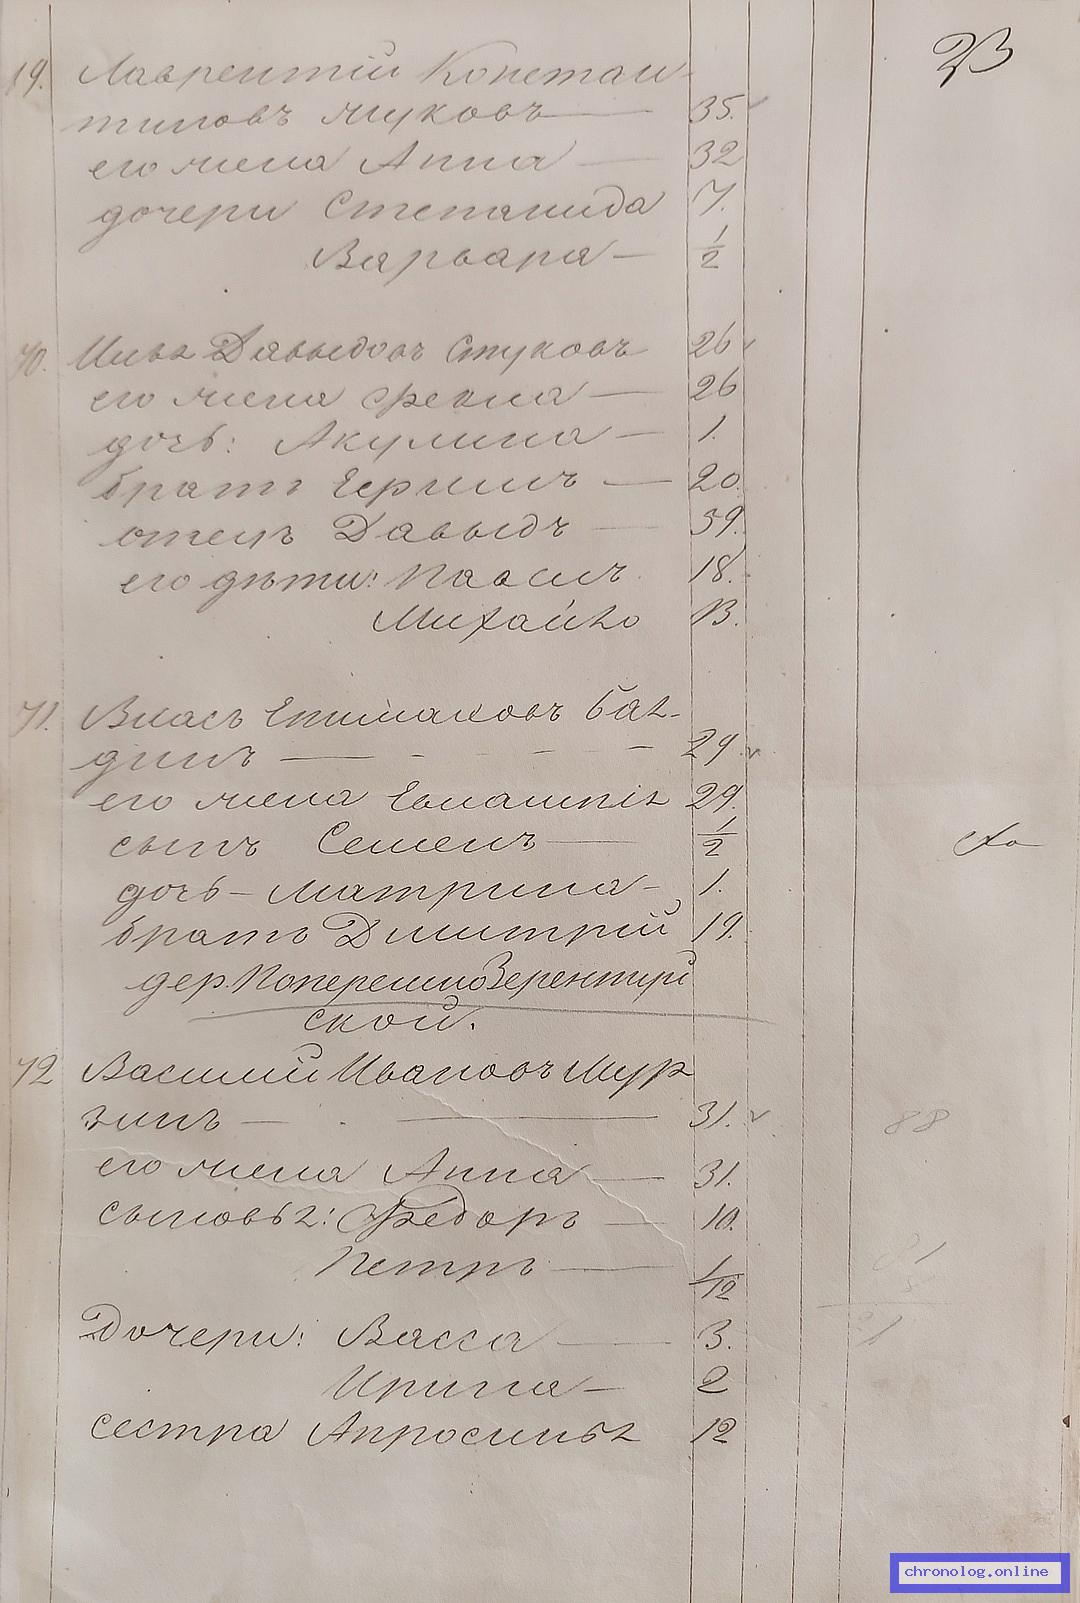 23
19. Лаврентій Констан-
тиновъ Жуковъ — 35.
его жена Анна — 32
дочери Степанида 7.
Варвара — 1/2
70. Илья Давыдовъ Стуковъ 26
его жена Фекла — 26
дочь: Акулина — 1.
братъ — 20.
отецъ Давыдъ — 59.
его дѣти: 18.
Михайло 13.
71. Власъ Епимаховъ Бал-
динъ — 29
его жена Евлампія 29.
сынъ Семенъ — 1/2
дочь — Матрина — 1.
братъ Димитрій 19.
дер. ПоперечноЗерентуй
ской.
72 Василій Ивановъ Мур
зинъ — 31.
его жена Анна — 31.
сыновья: Федоръ — 10.
Петръ — 1/12
88
81
Дочери: Васса — 3.
Ирина — 2
сестра Апросинья 12
chronolog.online